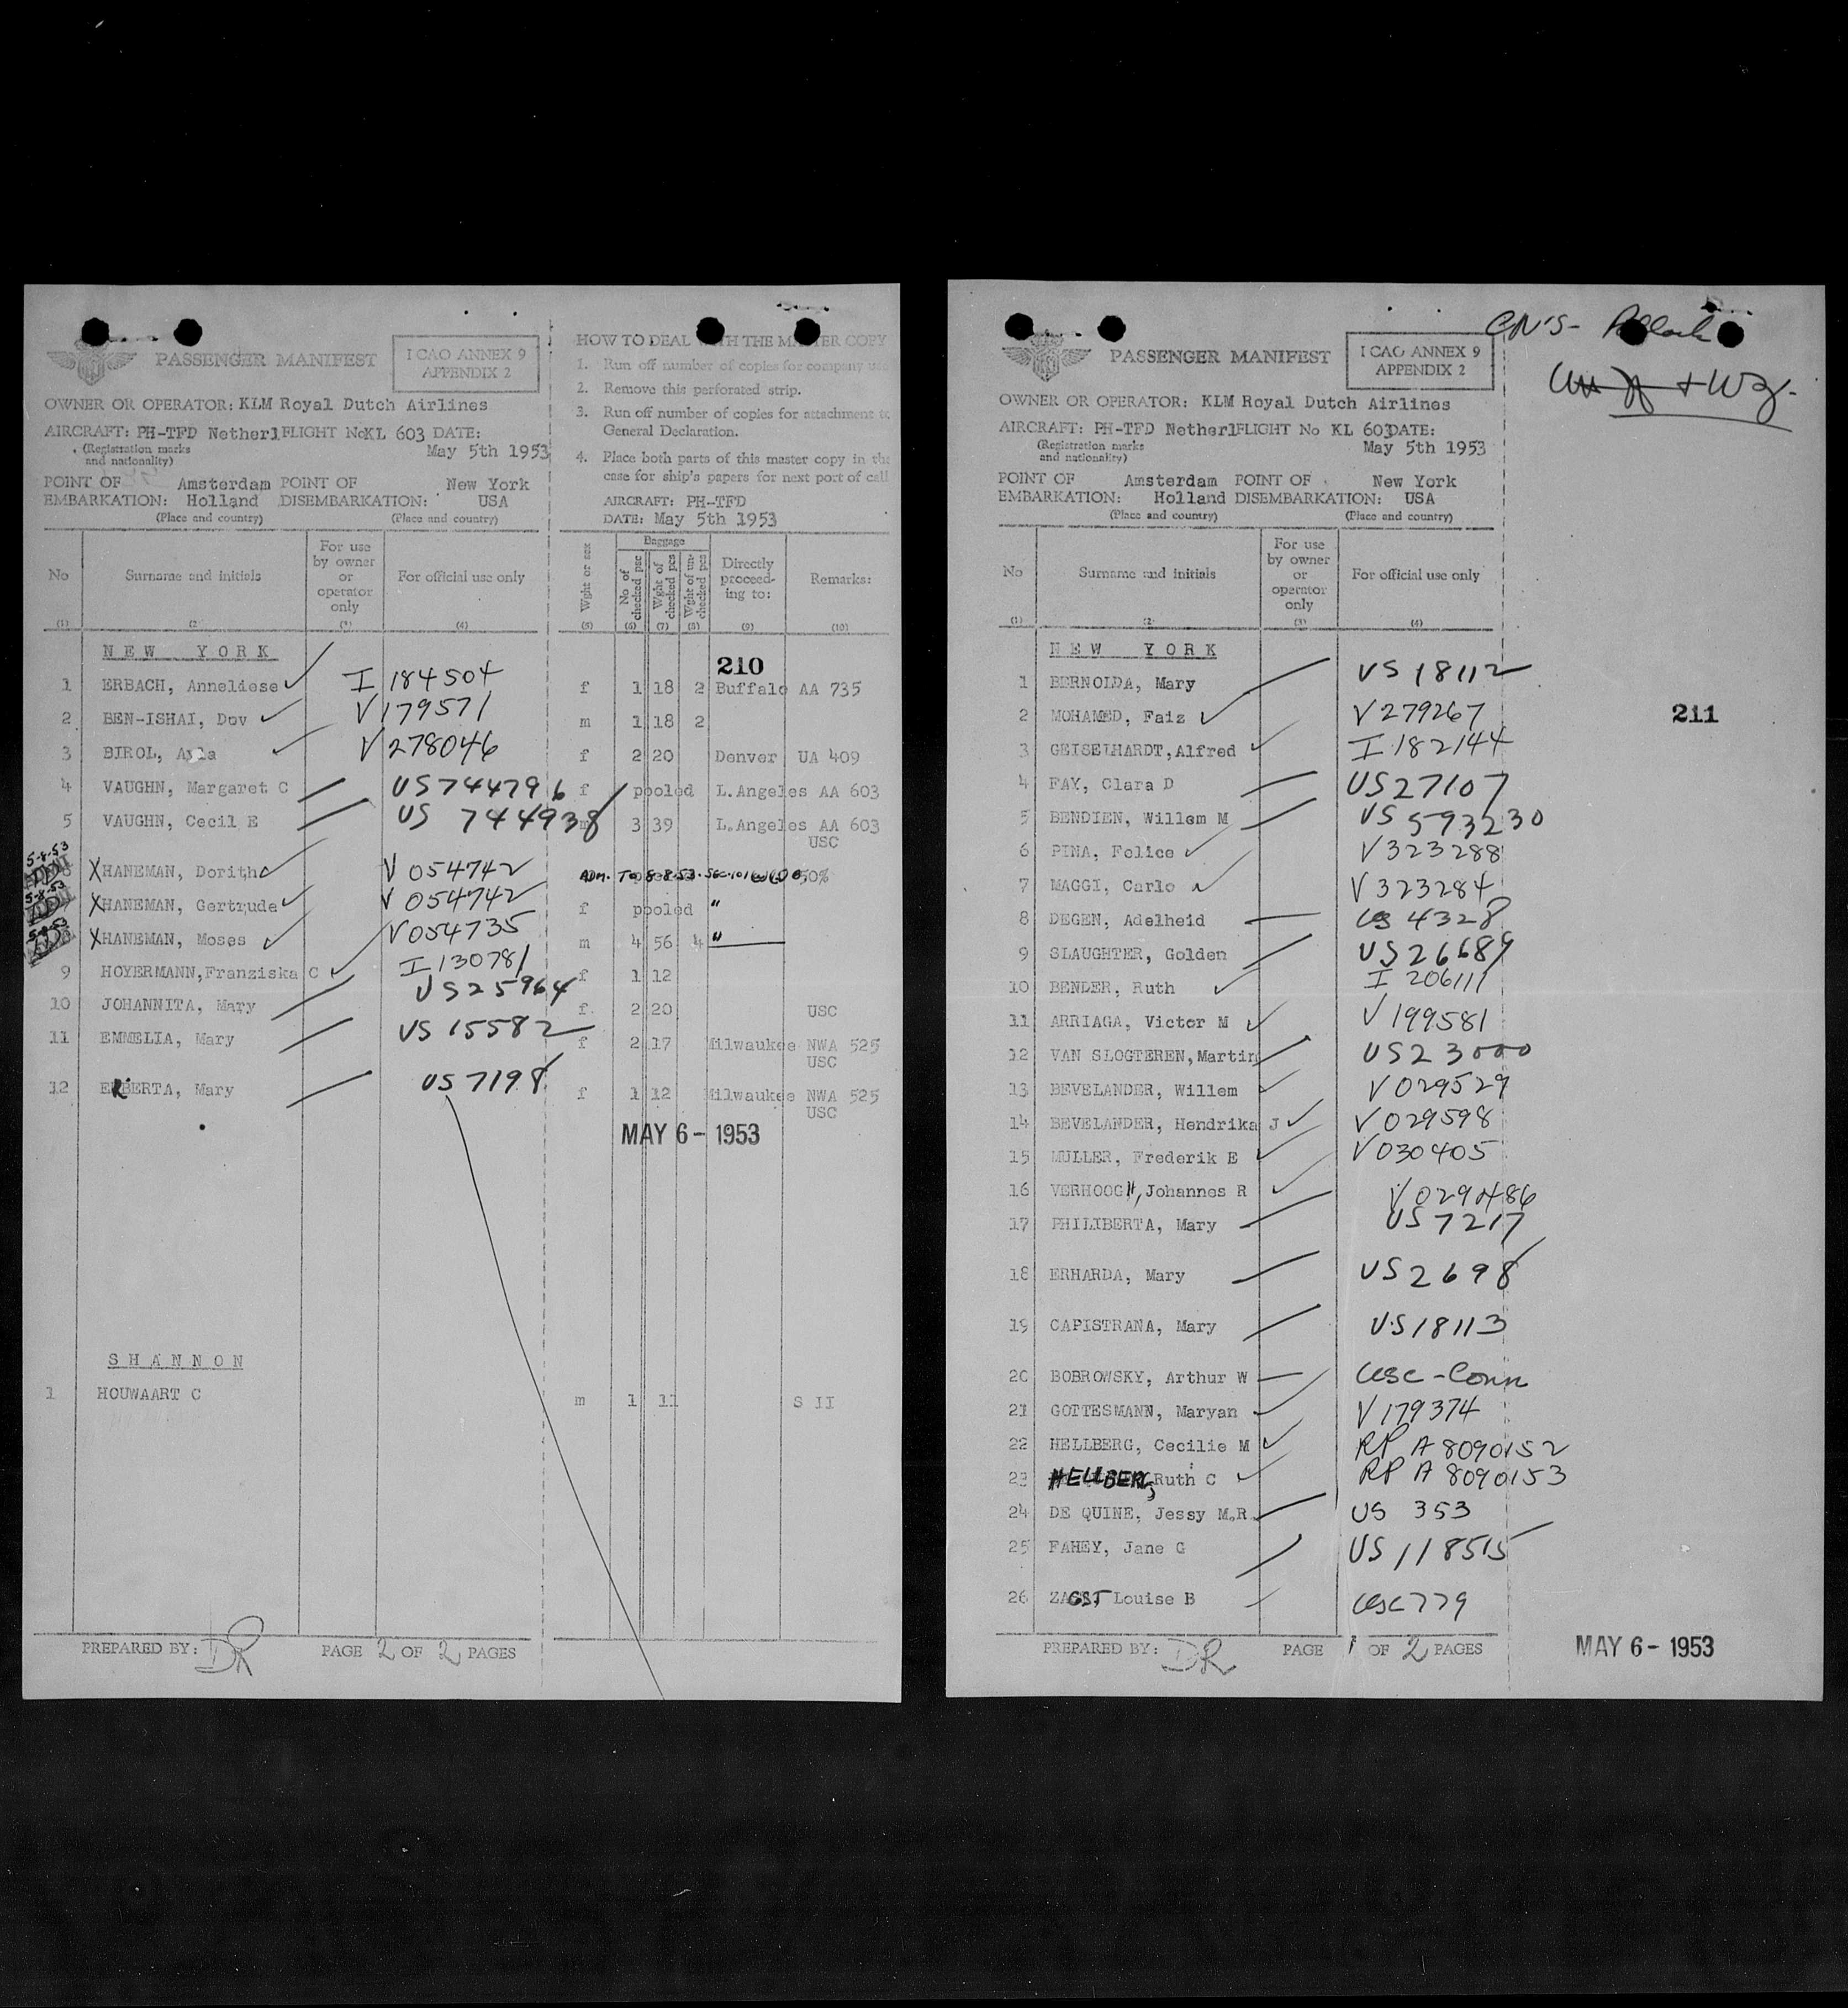 PASSENGER MANIFEST
I CAO ANNEX 9
APPENDIX 2
OWNER OR OPERATOR: KLM Royal Dutch Airlines
AIRCRAFT: PH-TFD Netherl FLIGHT No KL 603 DATE:
(Registration marks
and nationality)
May 5th 1953
POINT OF Amsterdam POINT OF New York
EMBARKATION: Holland DISEMBARKATION: USA
(Place and country) (Place and country)
HOW TO DEAL WITH THE MASTER COPY
1. Run off number of copies for company use
2. Remove this perforated strip.
3. Run off number of copies for attachment to
General Declaration.
4. Place both parts of this master copy in the
case for ship's papers for next port of call
AIRCRAFT: PH-TFD
DATE: May 5th 1953
No Surname and initials For use by owner or operator only For official use only Wght or sex Baggage No of checked pcs Wght of checked pcs Wght of un-checked pcs Directly proceed-ing to: Remarks:
(1) (2 (3) (4) (5) (6) (7) (8) (9) (10)
NEW YORK 210
1 ERBACH, Anneliese I 184504 f 1 18 2 Buffalo AA 735
2 BEN-ISHAI, Dov V179571 m 1 18 2
3 BIROL, Ayla V278046 f 2 20 Denver UA 409
4 VAUGHN, Margaret C US744796 f pooled L.Angeles AA 603
5 VAUGHN, Cecil E US 744938 m 3 39 L.Angeles AA 603
USC
5-8-53 X HANEMAN, Doritha V 054742 ADM. TO 8-8-53. 50%
5-8-53 X HANEMAN, Gertrude V 054742 f pooled "
5-8-53 X HANEMAN, Moses V054735 m 4 56 4 "
9 HOYERMANN, Franziska C I 130781 f 1 12
10 JOHANNITA, Mary US25964 f 2 20 USC
11 EMMELIA, Mary US 15582 f 2 17 Milwaukee NWA 525
USC
12 ERBERTA, Mary US7198 f 1 12 Milwaukee NWA 525
USC
MAY 6 - 1953
SHANNON
1 HOUWAART C m 1 11 S II
PREPARED BY: DR PAGE 2 OF 2 PAGES
GN'S-
PASSENGER MANIFEST
I CAO ANNEX 9
APPENDIX 2
OWNER OR OPERATOR: KLM Royal Dutch Airlines
AIRCRAFT: PH-TFD Netherl FLIGHT No KL 603 DATE:
(Registration marks
and nationality)
May 5th 1953
POINT OF Amsterdam POINT OF New York
EMBARKATION: Holland DISEMBARKATION: USA
(Place and country) (Place and country)
No Surname and initials For use by owner or operator only For official use only
(1) (2) (3) (4)
NEW YORK
1 BERNOLDA, Mary US 18112
2 MOHAMED, Faiz V279267 211
3 GEISELHARDT, Alfred I 182144
4 FAY, Clara D US27107
5 BENDIEN, Willem M US 593230
6 PINA, Felice V323288
7 MAGGI, Carlo V323284
8 DEGEN, Adelheid US 4328
9 SLAUGHTER, Golden US26689
10 BENDER, Ruth I 206111
11 ARRIAGA, Victor M V199581
12 VAN SLOGTEREN, Martin US23000
13 BEVELANDER, Willem V029529
14 BEVELANDER, Hendrika J V029598
15 MULLER, Frederik E V030405
16 VERHOOGH, Johannes R V029486
17 PHILIBERTA, Mary US7217
18 ERHARDA, Mary US2698
19 CAPISTRANA, Mary US18113
20 BOBROWSKY, Arthur W USC-Conn
21 GOTTESMANN, Maryan V179374
22 HELLBERG, Cecilie M RP A8090152
23 HELLBERG, Ruth C RP A 8090153
24 DE QUINE, Jessy M.R. US 353
25 FAHEY, Jane G US 118515
26 ZAGST, Louise B USC 779
PREPARED BY: DR PAGE 1 OF 2 PAGES
MAY 6 - 1953